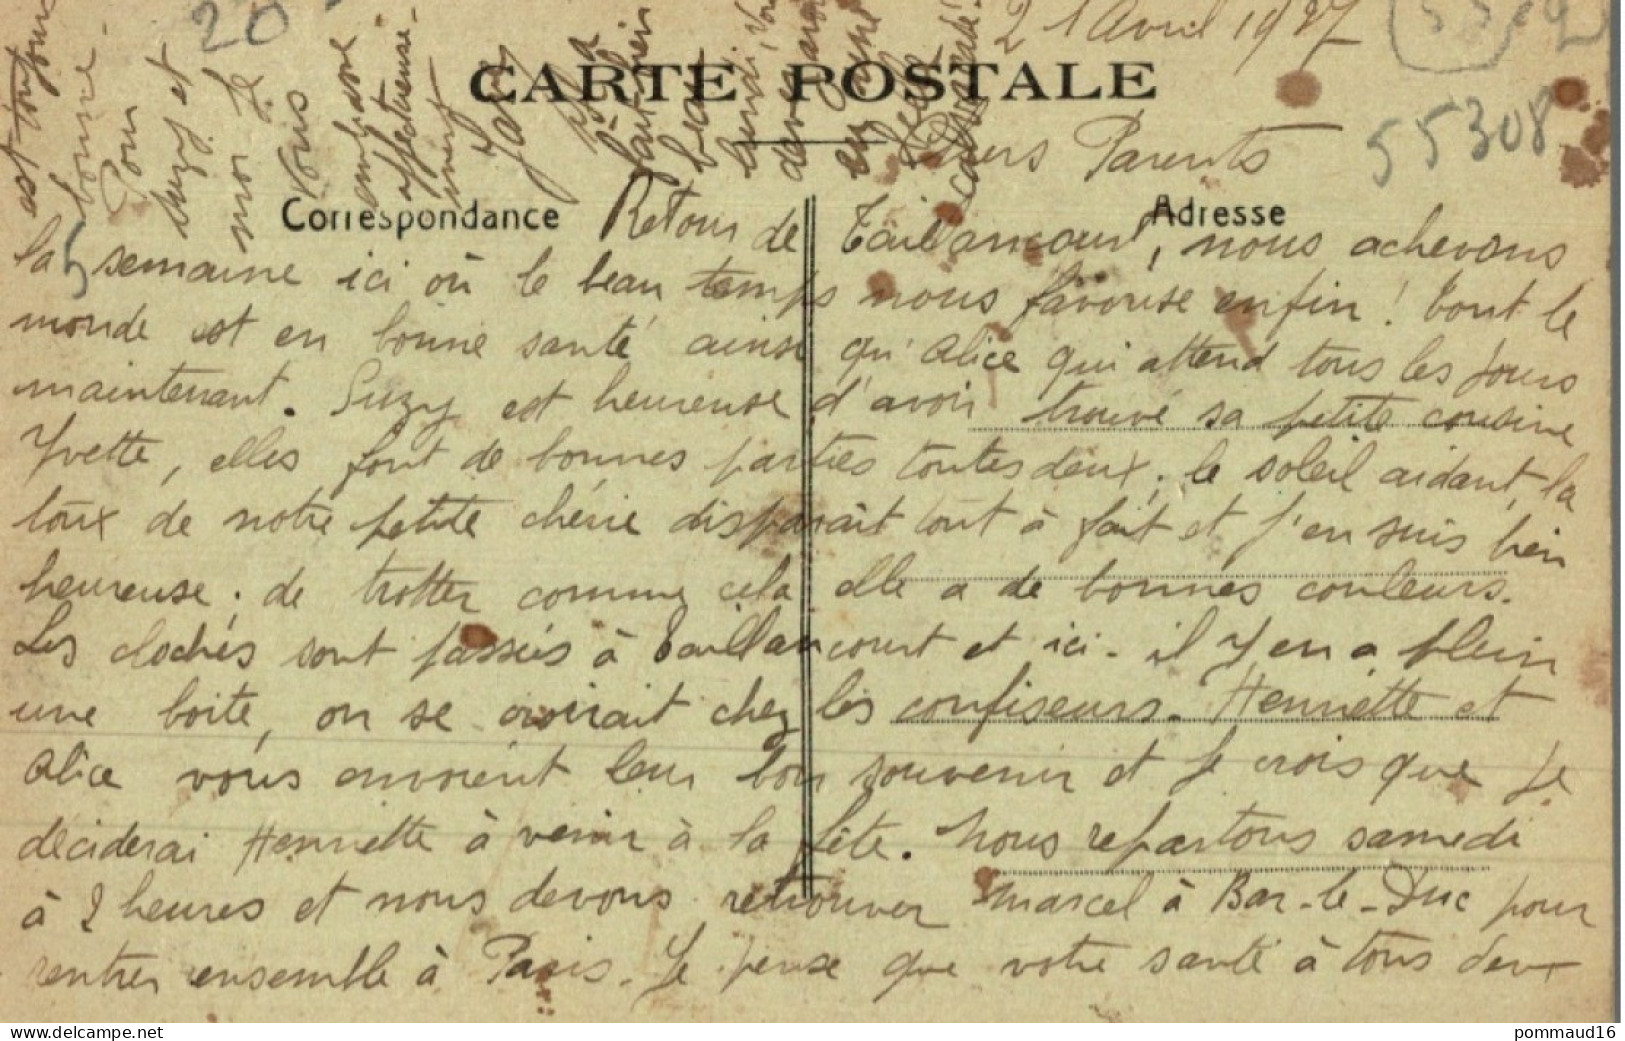 21 Avril 1927
CARTE POSTALE
55308
Chers Parents
Correspondance
Adresse
Retour de Taillancourt, nous achevons
la semaine ici où le beau temps nous favorise enfin ! tout le
monde est en bonne santé ainsi qu'Alice qui attend tous les jours
maintenant. Suzy est heureuse d'avoir trouvé sa petite cousine
Yvette, elles font de bonnes parties toutes deux ; le soleil aidant, la
toux de notre petite chérie disparaît tout à fait et j'en suis bien
heureuse ; de trotter comme cela elle a de bonnes couleurs.
Les cloches sont passées à Taillancourt et ici - il y en a plein
une boite, on se croirait chez les confiseurs. Henriette et
Alice vous envoient leur bon souvenir et je crois que je
déciderai Henriette à venir à la fête. Nous repartons samedi
à 2 heures et nous devons retrouver Marcel à Bar-le-Duc pour
rentrer ensemble à Paris. Je pense que votre santé à tous deux
est toujours
bonne.
Pour
Suzy et
moi je
vous
embrasse
affectueuse-
ment
20
beau
devez
pommaud16
www.delcampe.net